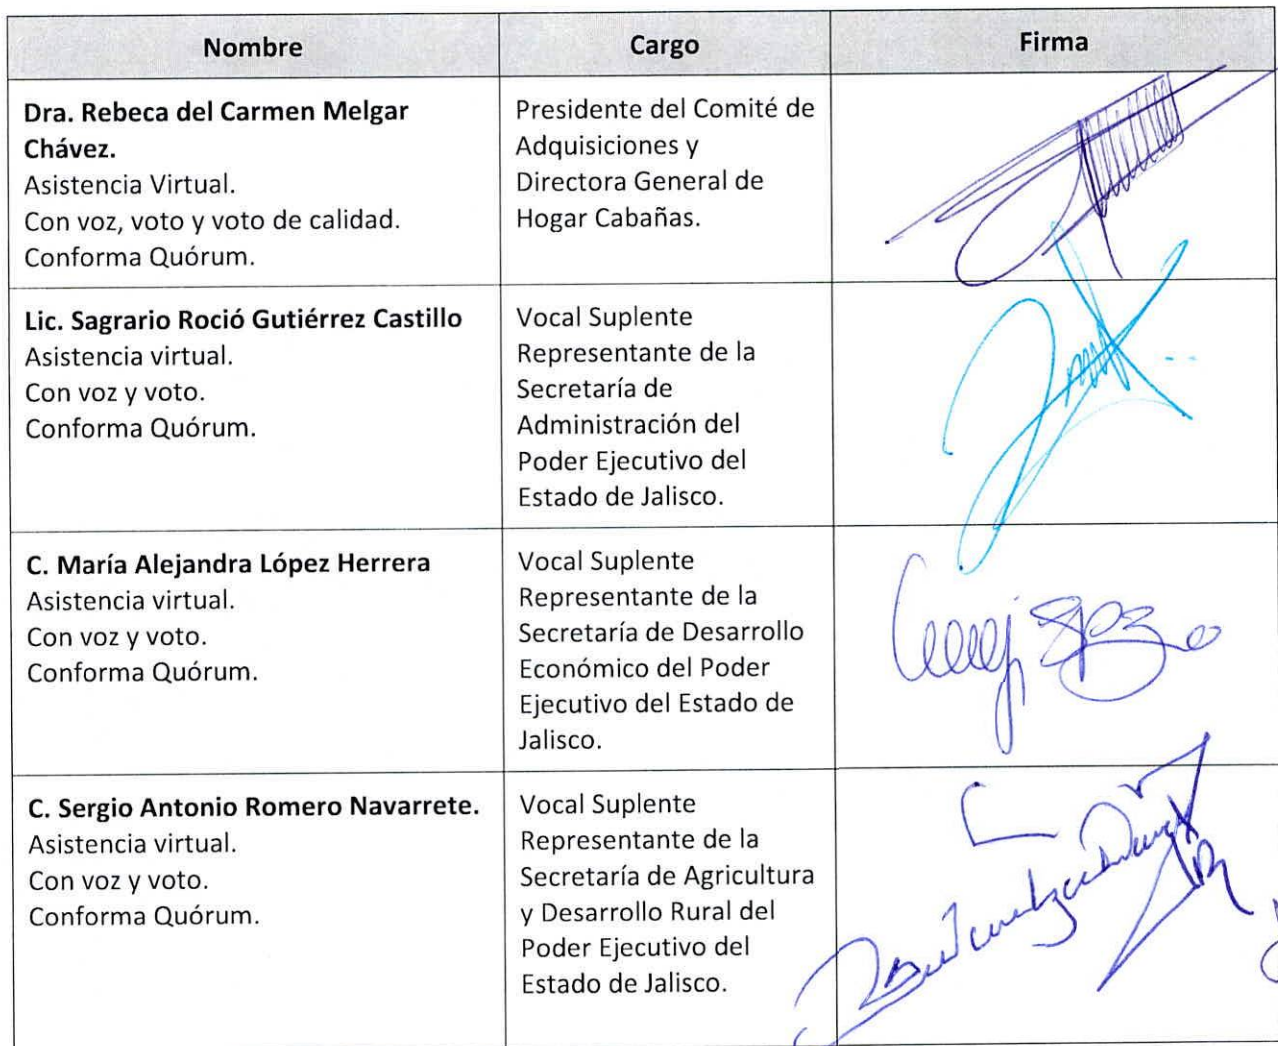 Nombre Cargo Firma
Dra. Rebeca del Carmen Melgar
Chávez.
Asistencia Virtual.
Con voz, voto y voto de calidad.
Conforma Quórum.
Presidente del Comité de
Adquisiciones y
Directora General de
Hogar Cabañas.
Lic. Sagrario Roció Gutiérrez Castillo
Asistencia virtual.
Con voz y voto.
Conforma Quórum.
Vocal Suplente
Representante de la
Secretaría de
Administración del
Poder Ejecutivo del
Estado de Jalisco.
C. María Alejandra López Herrera
Asistencia virtual.
Con voz y voto.
Conforma Quórum.
Vocal Suplente
Representante de la
Secretaría de Desarrollo
Económico del Poder
Ejecutivo del Estado de
Jalisco.
C. Sergio Antonio Romero Navarrete.
Asistencia virtual.
Con voz y voto.
Conforma Quórum.
Vocal Suplente
Representante de la
Secretaría de Agricultura
y Desarrollo Rural del
Poder Ejecutivo del
Estado de Jalisco.